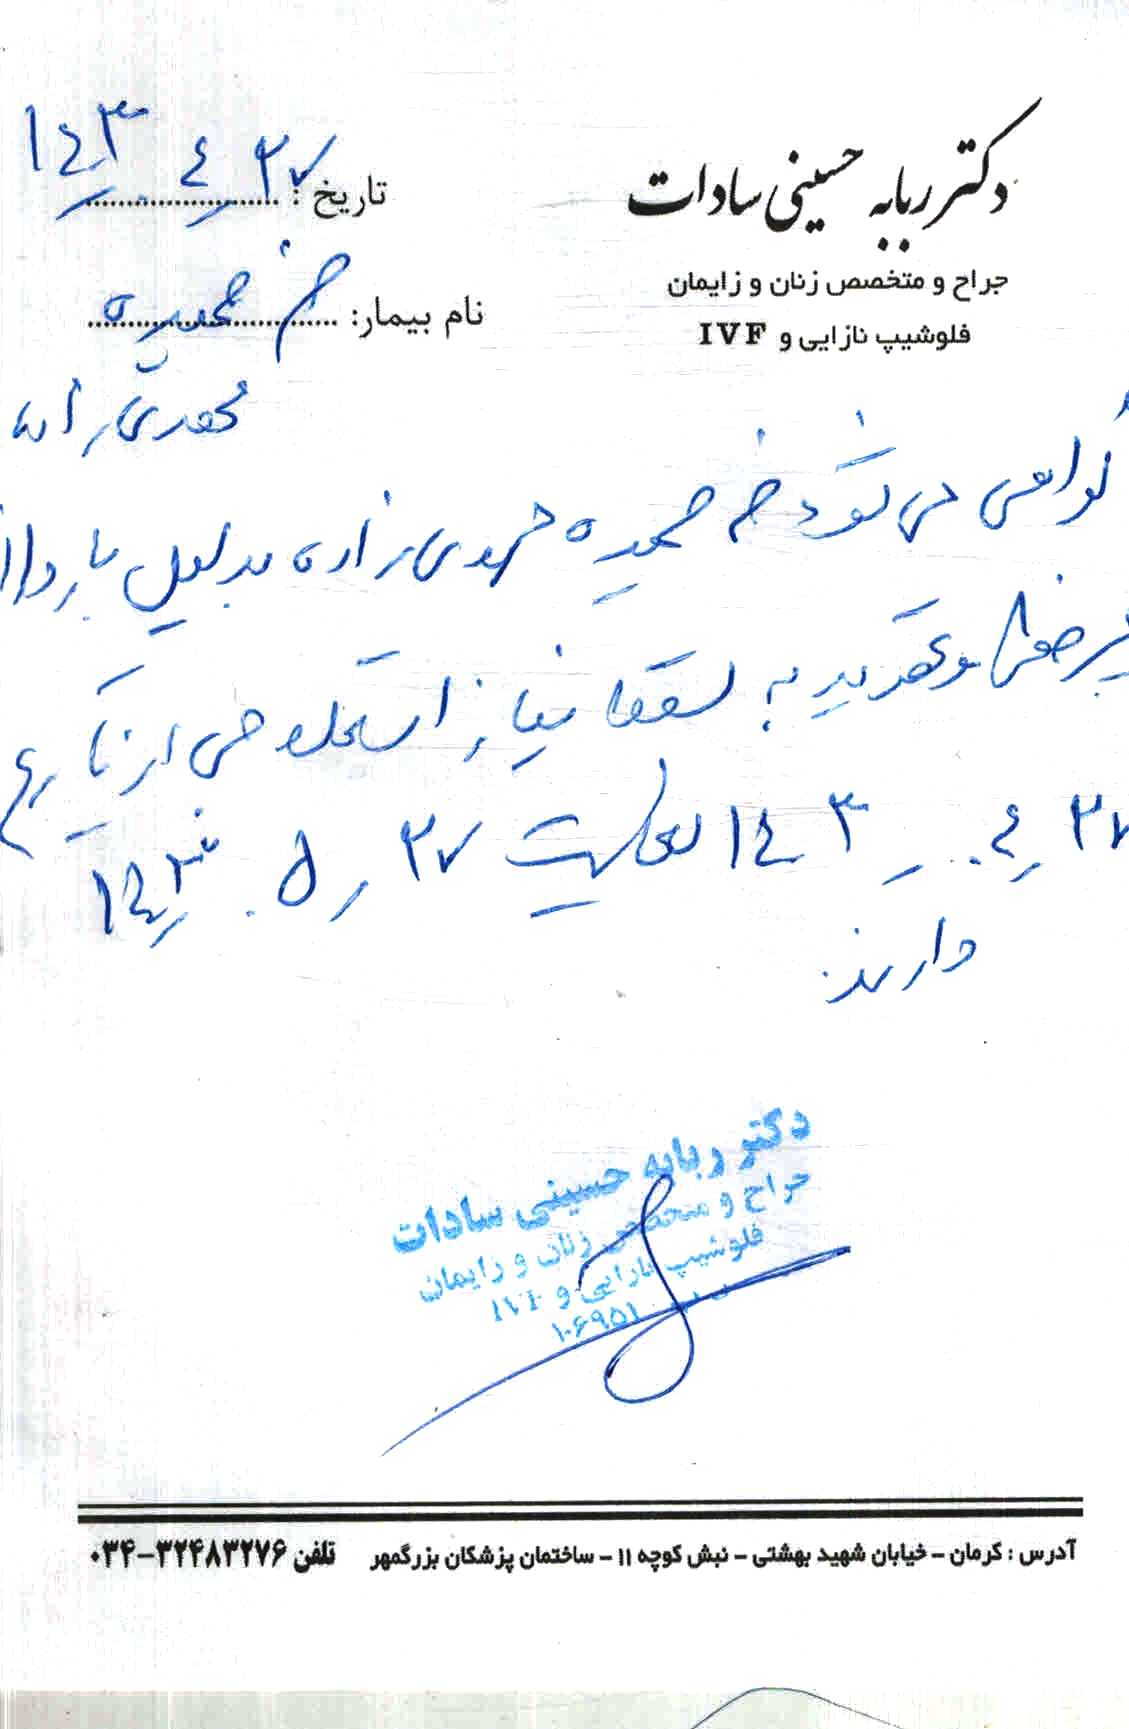 دکتر ربابه حسینی سادات
جراح و متخصص زنان و زایمان
فلوشیپ نازایی و IVF
تاریخ : ۲۷ ٤ ۱٤۰۳
نام بیمار: خ حمیده
محمدی زاده
گواهی می شود خ حمیده محمدی زاده بدلیل باردار
و تهدید به سقط نیاز استعلاجی از تاریخ
۲۷ ٤ ۱٤۰۳ لغایت ۲۷ ۵ ۱٤۰۳
دارند.
دکتر ربابه حسینی سادات
جراح و متخصص زنان و زایمان
فلوشیپ نازایی و IVF
۱۰۶۹۵۱
آدرس : کرمان – خیابان شهید بهشتی – نبش کوچه ۱۱ – ساختمان پزشکان بزرگمهر تلفن ۳۲۴۸۳۲۷۶–۰۳۴